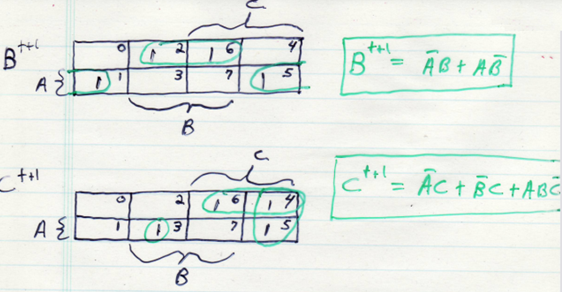 C
B^{t+1}
0 1 2 1 6 4
A { 1 1 3 7 1 5
B
B^{t+1} = A̅B + AB̅
C
C^{t+1}
0 2 1 6 1 4
A { 1 1 3 7 1 5
B
C^{t+1} = A̅C + B̅C + ABC̅